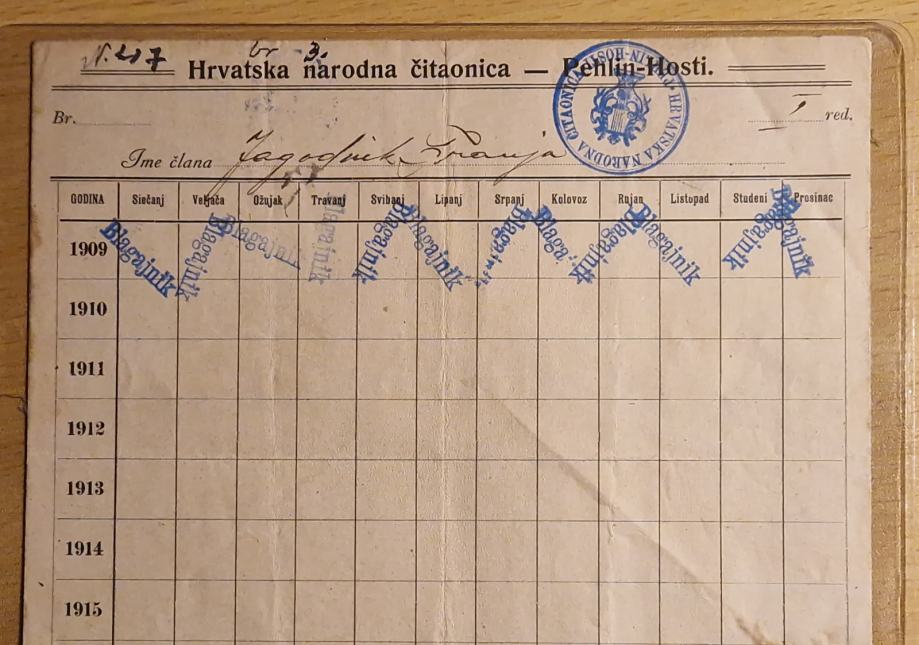 N. 217 br 3.
Hrvatska narodna čitaonica — Pehlin-Hosti.
HRVATSKA NARODNA ČITAONICA PEHLIN-HOSTI
Br. I red.
Ime člana Jagodnik Franja
GODINA Siečanj Veljača Ožujak Travanj Svibanj Lipanj Srpanj Kolovoz Rujan Listopad Studeni Prosinac
1909 Blagajnik Blagajnik Blagajnik Blagajnik Blagajnik Blagajnik Blagajnik Blagajnik Blagajnik Blagajnik Blagajnik Blagajnik
1910
1911
1912
1913
1914
1915